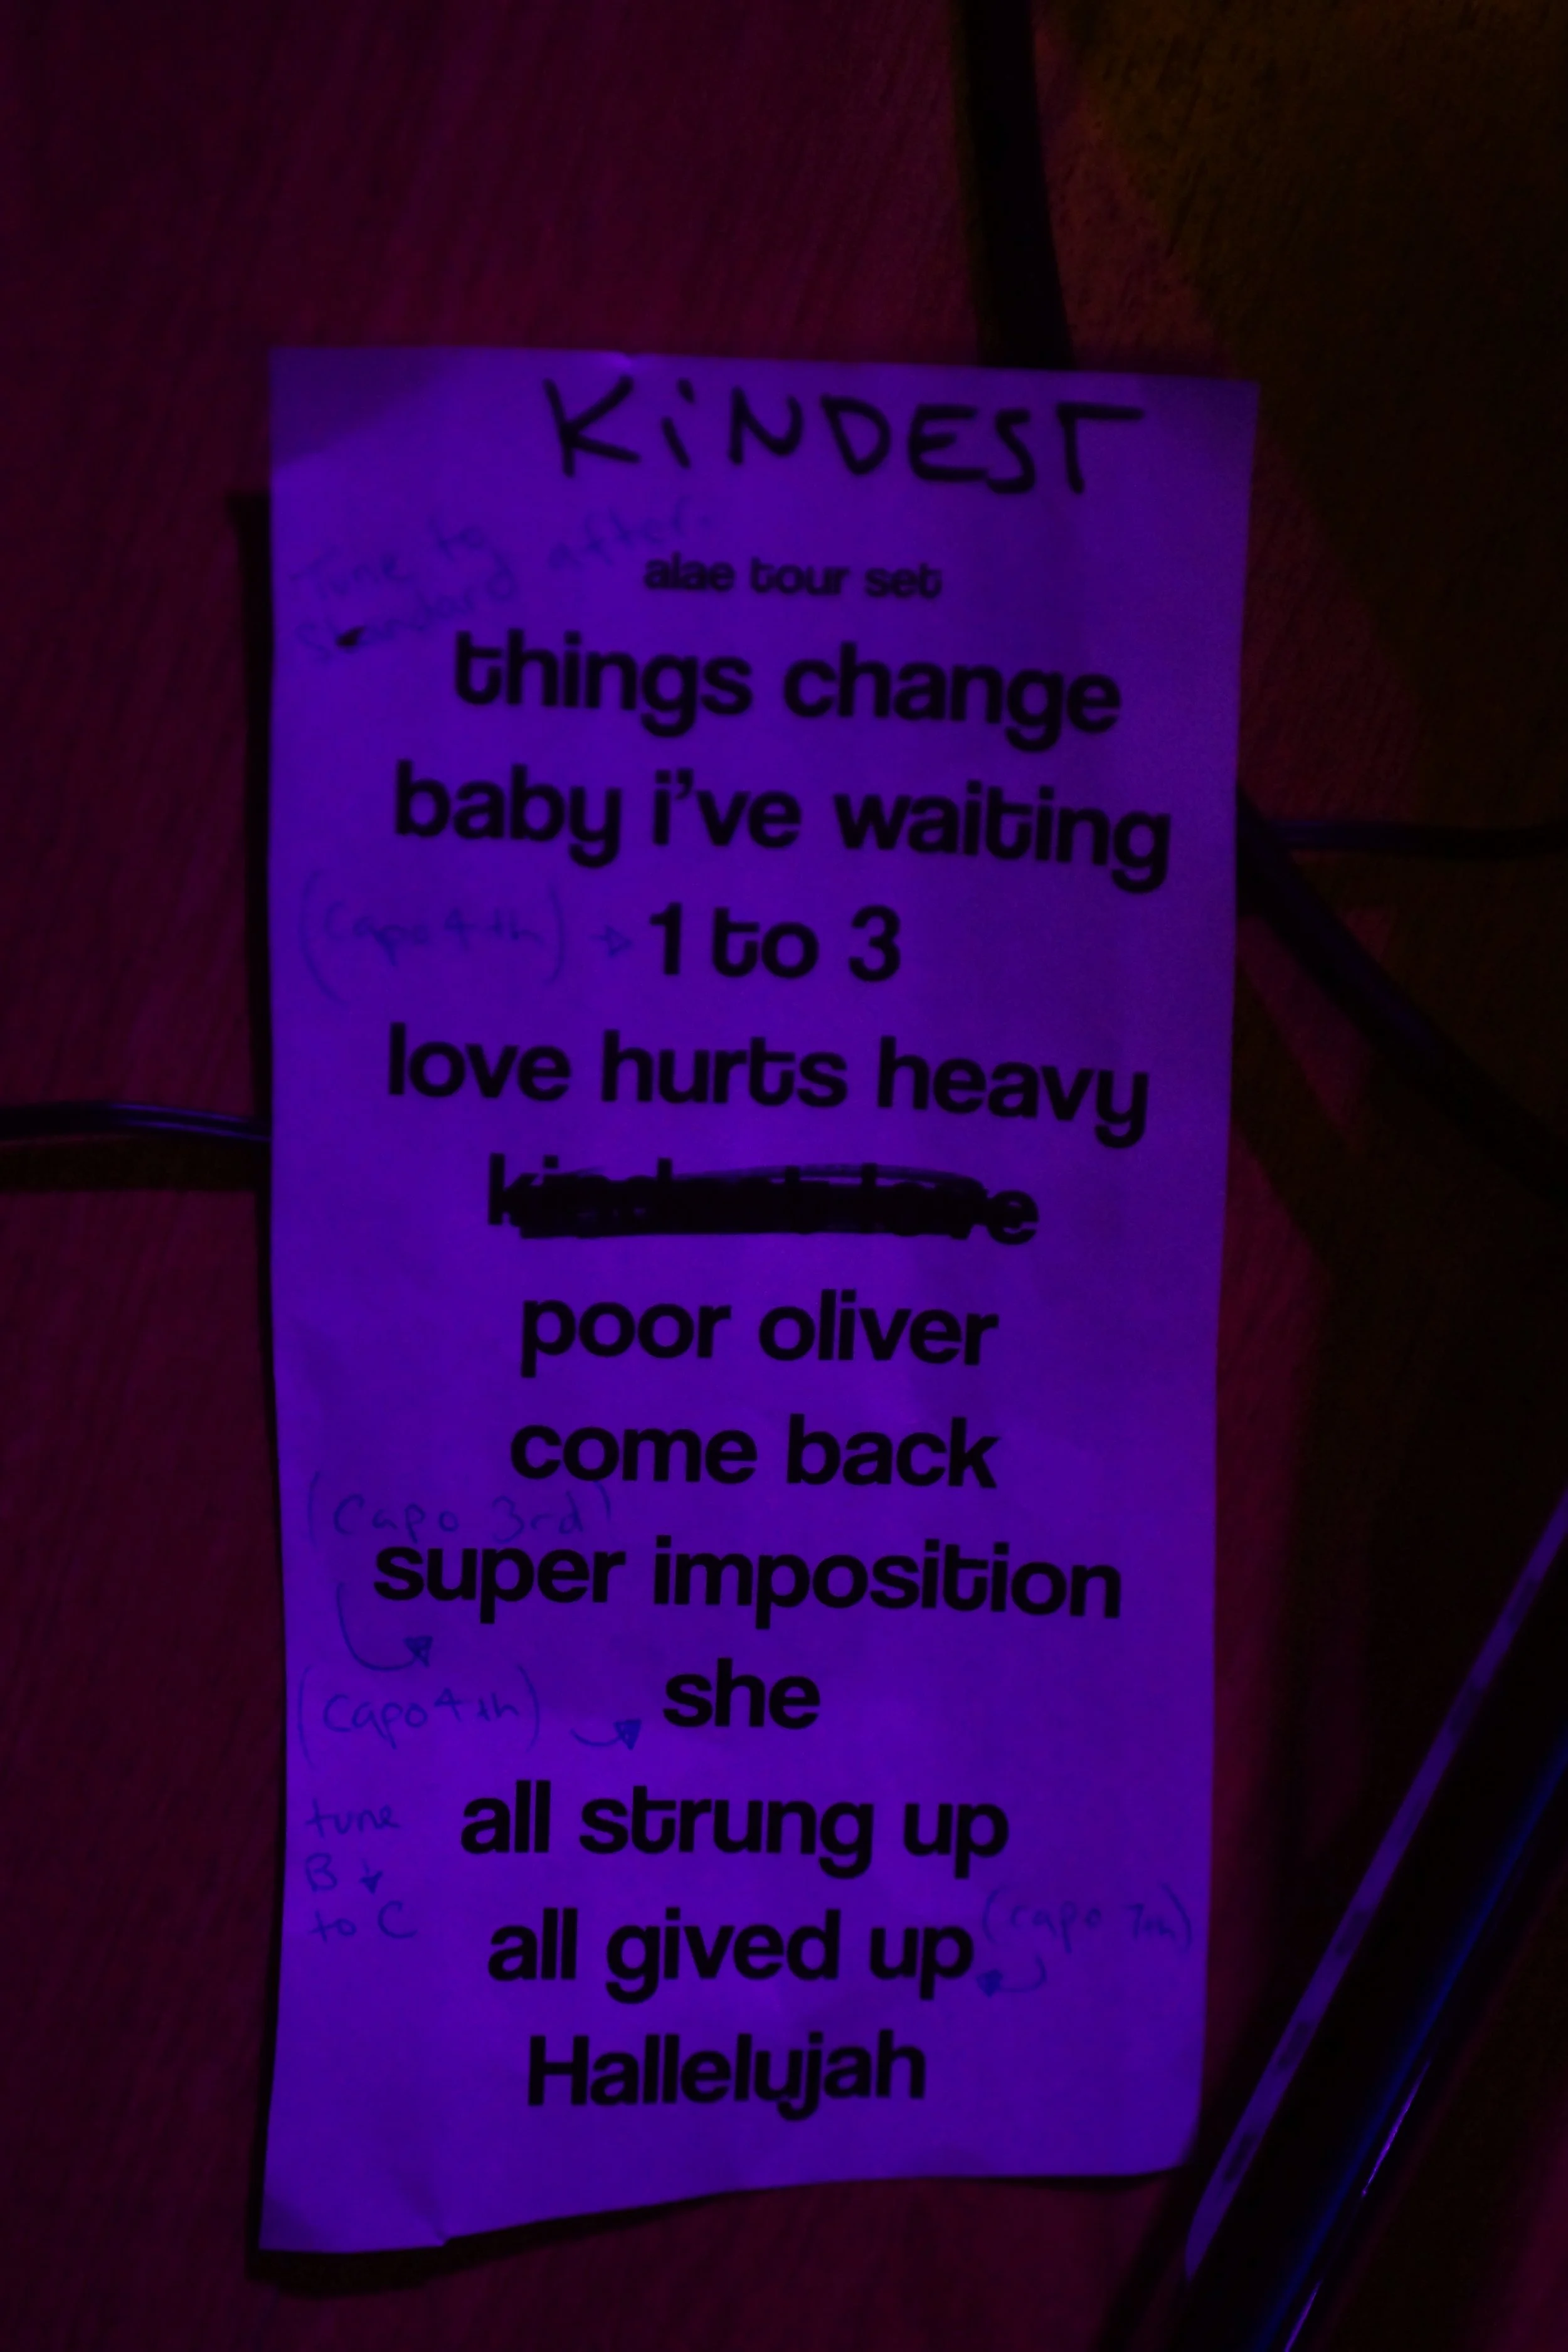 KiNDEST
Tune to
Standard after.
alae tour set
things change
baby i've waiting
(Capo 4th) → 1 to 3
love hurts heavy
poor oliver
come back
(Capo 3rd)
super imposition
(Capo 4th) she
tune
B ↓
to C
all strung up
all gived up (capo 7th)
Hallelujah